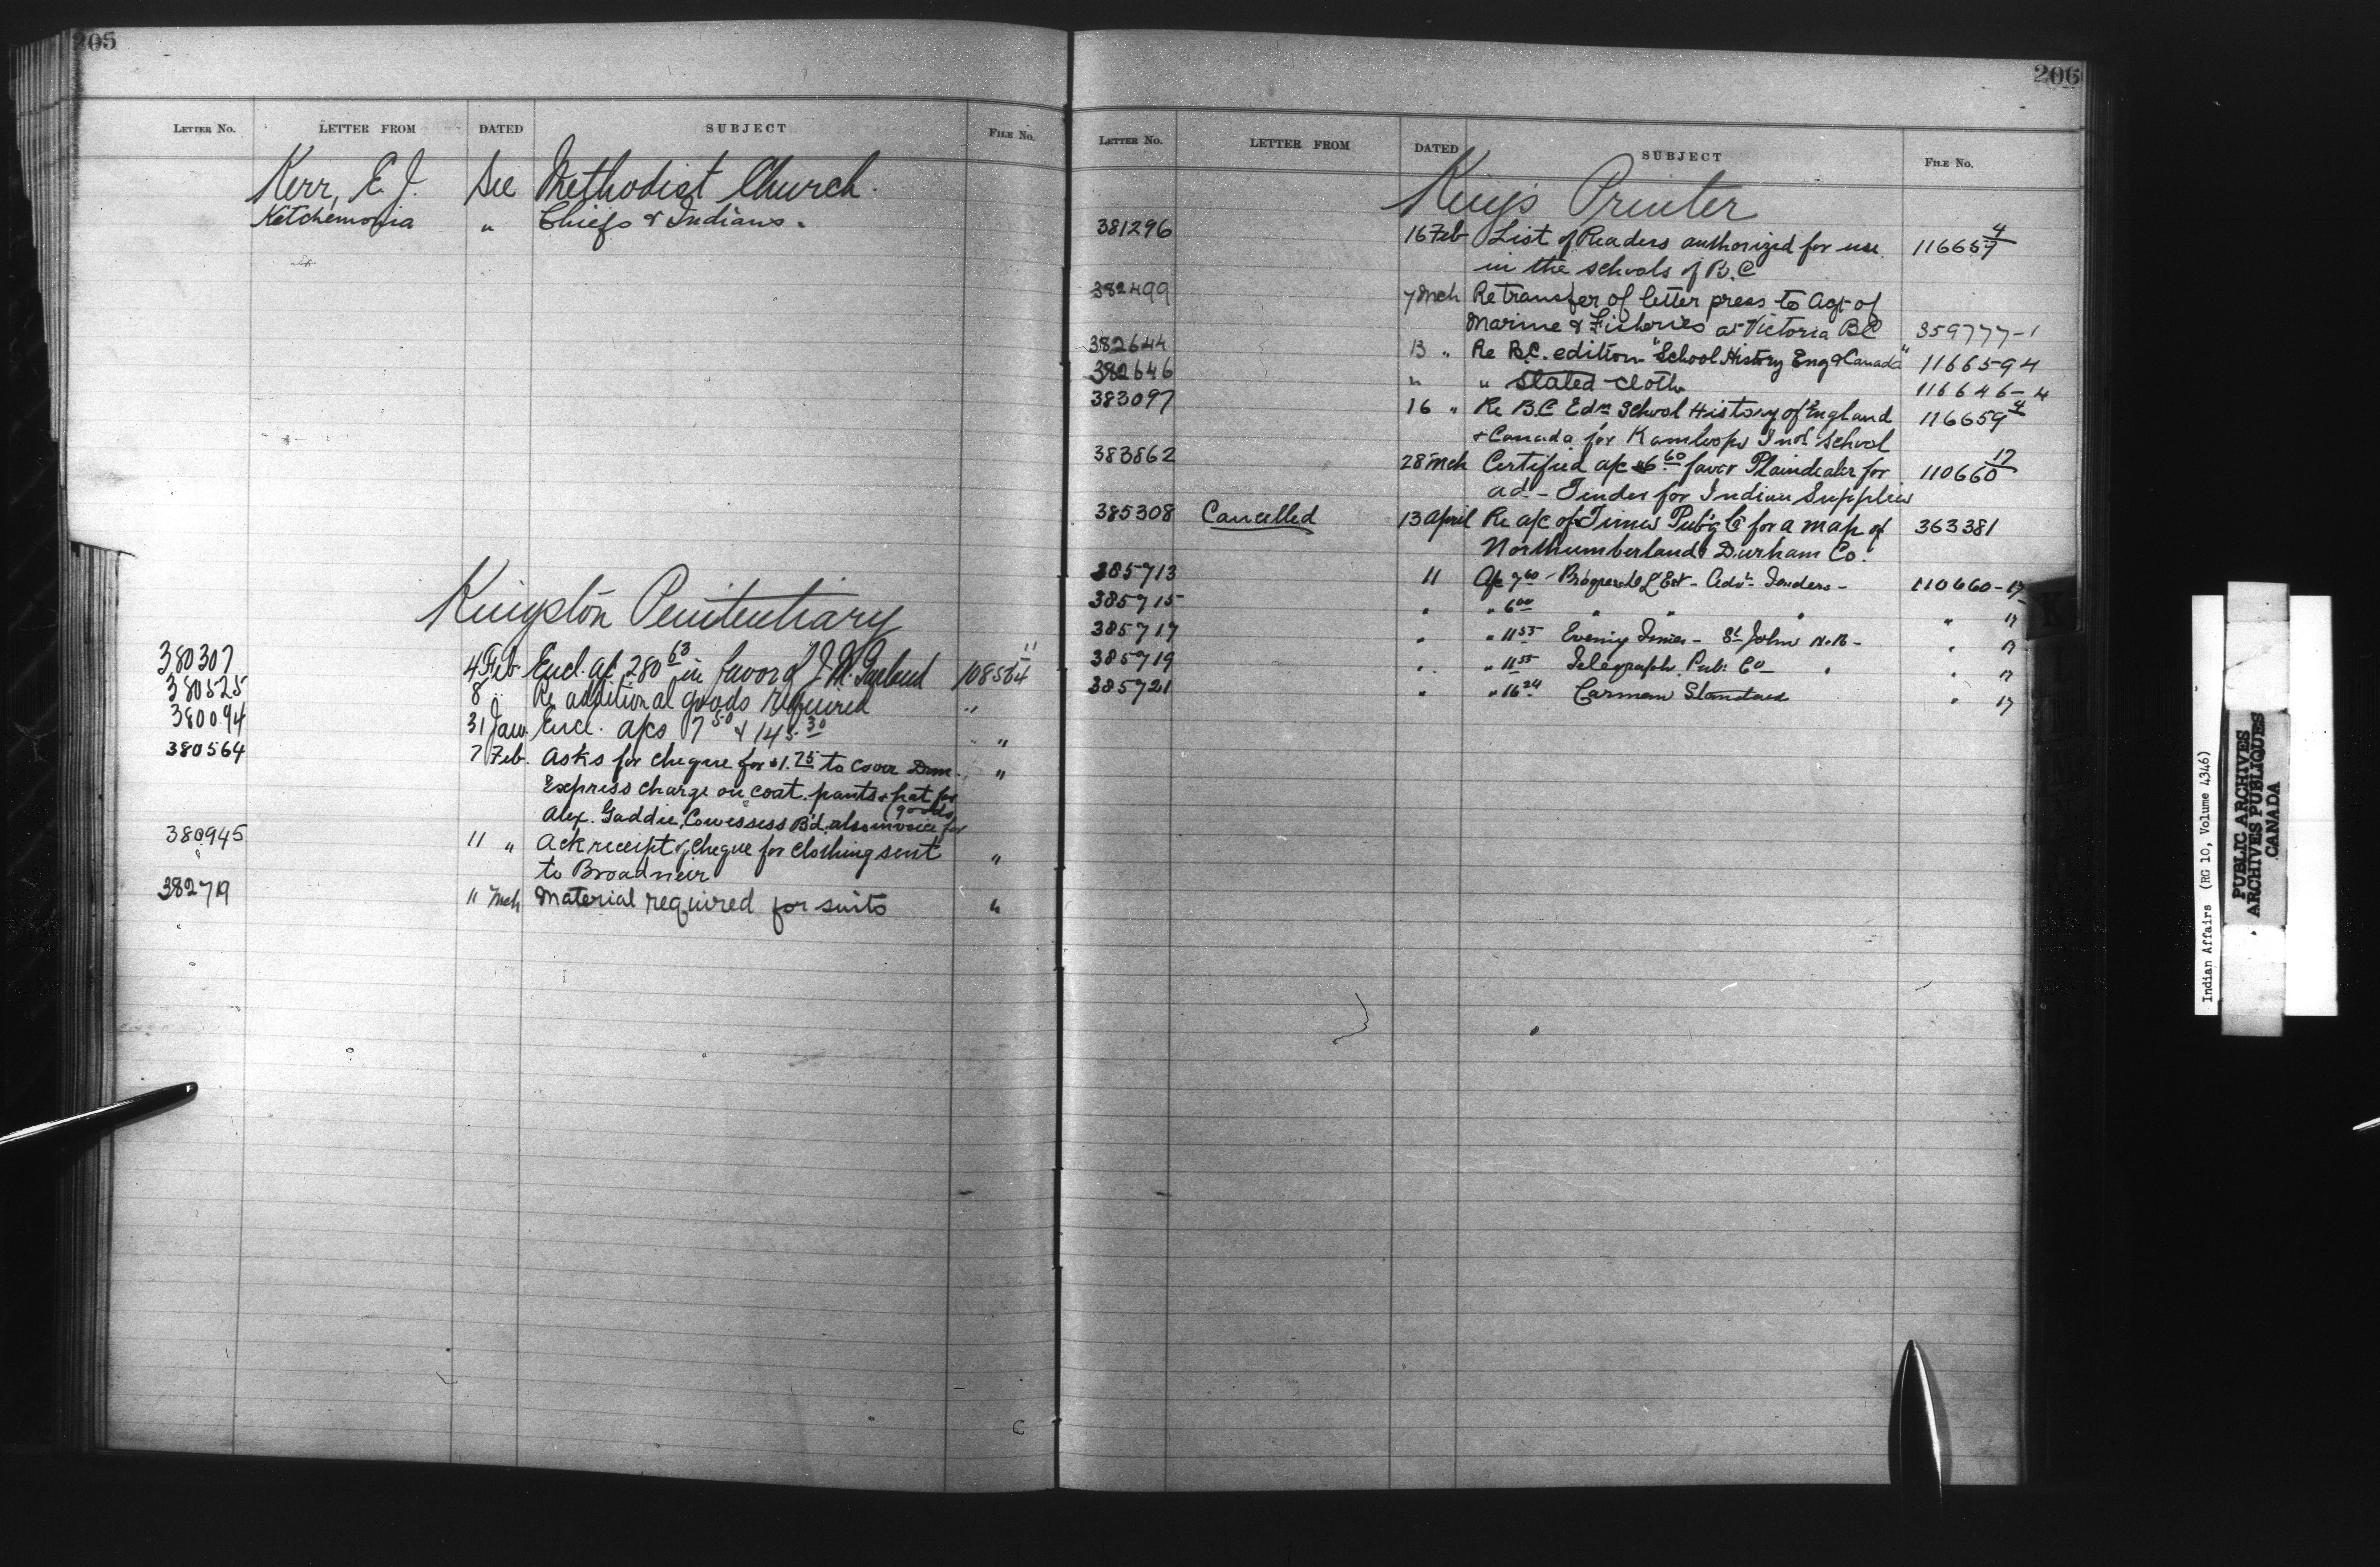 205
LETTER NO. LETTER FROM DATED SUBJECT FILE NO.
Kerr, E. J. See Methodist Church.
Ketchemonia " Chiefs & Indians.
Kingston Penitentiary
380307 4 Feb Encl. a/c 280 63 in favor of J. M. Garland 108564 11
380525 8 " Re additional goods required "
380094 31 Jan Encl. a/cs 7 50 & 145 30 "
380564 7 Feb. Asks for cheque for $1.75 to cover Dom. "
Express charge on coat, pants & hat for
Alex. Gaddie, Cowessess Bd, also invoice for (goods
380945 11 " Ack receipt of cheque for clothing sent "
to Broadview
382719 11 Mch Material required for suits "
206
LETTER NO. LETTER FROM DATED SUBJECT FILE NO.
King's Printer
381296 16 Feb List of Readers authorized for use 116659 4
in the schools of B.C
382499 7 Mch Re transfer of letter press to Agt of
Marine & Fisheries at Victoria BC 359777-1
382644 13 " Re B.C. edition "School History Eng & Canada" 116659 4
382646 " " Slated cloth 116646-4
383097 16 " Re B.C Edn School History of England 116659 4
& Canada for Kamloops Indl School
383862 28 Mch Certified a/c $6 60 favor Plaindealer for 110660 17
ad - Tinder for Indian Supplies
385308 Cancelled 13 April Re a/c of Times Pub'g Co for a map of 363381
Northumberland & Durham Co.
385713 11 A/c 7 60 - Progress & L'Est - Advt Tenders - 110660-17
385715 " " 6 00 " " " " 17
385717 " " 11 55 Evening Times - St John N.B - " 17
385719 " " 11 55 Telegraph Pub: Co - " " 17
385721 " " 16 24 Carman Standard " 17
Indian Affairs (RG 10, Volume 4346)
PUBLIC ARCHIVES
ARCHIVES PUBLIQUES
CANADA